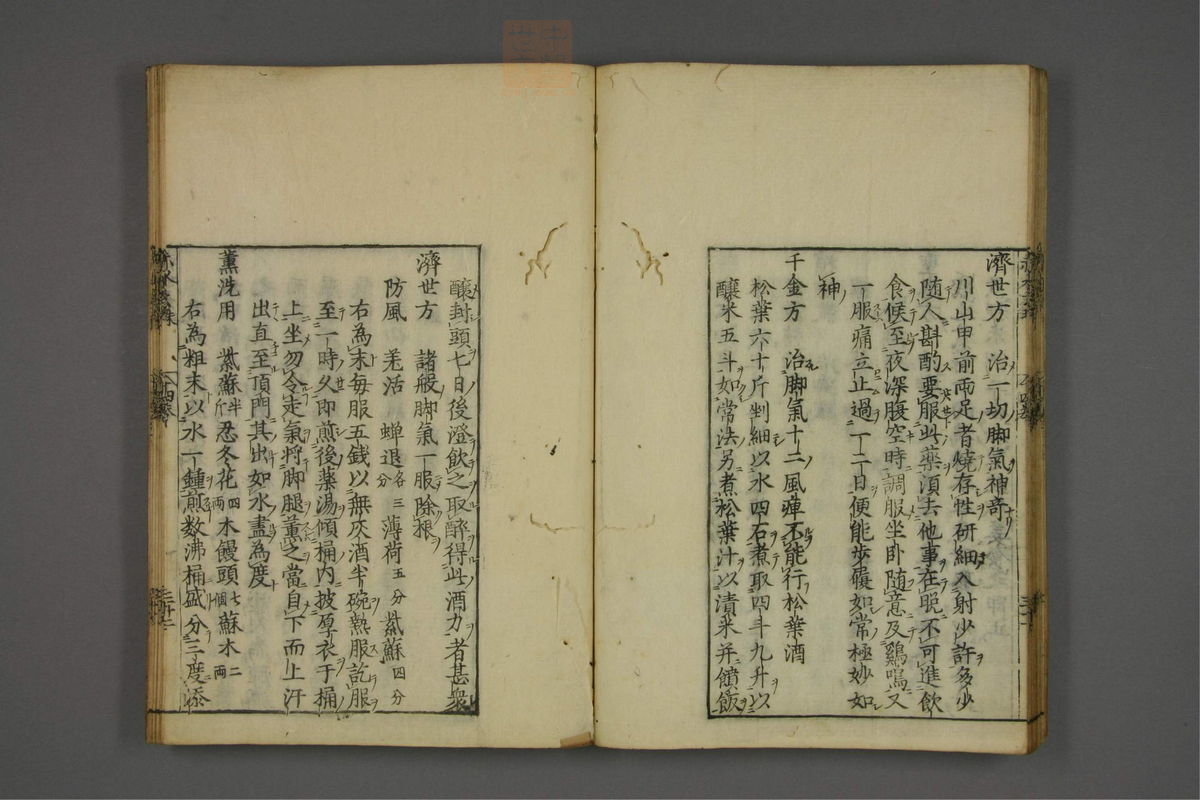 濟世方　治一切脚氣神奇
川山甲前両足者燒存性研細入射少許多少
随人斟酌要服此藥湏去他事在晚不可進飲
食候至夜深腹空時調服坐卧随意及鷄鳴又
一服痛立止過一二日便能歩履如常極妙如
神
千金方　治脚氣十二風痺不能行松葉酒
松葉六十斤剉細以水四石煮取四斗九升以
釀米五斗如常法另煮松葉汁以漬米并饙飯
釀封頭七日後澄飲之取醉得此酒力者甚衆
濟世方　諸般脚氣一服除根
防風　羌活　蟬退各三分　薄荷五分　紫蘇四分
右為末毎服五錢以無灰酒半碗熱服訖服
至一時久即煎後薬湯傾桶内披厚衣于桶
上坐勿令走氣将脚腿薫之當自下而上汗
出直至頂門其出如水盡為度
薫洗用　紫蘇半斤　忍冬花四両　木饅頭七個　蘇木二両
右為粗末以水一鍾煎数沸桶盛分三度添